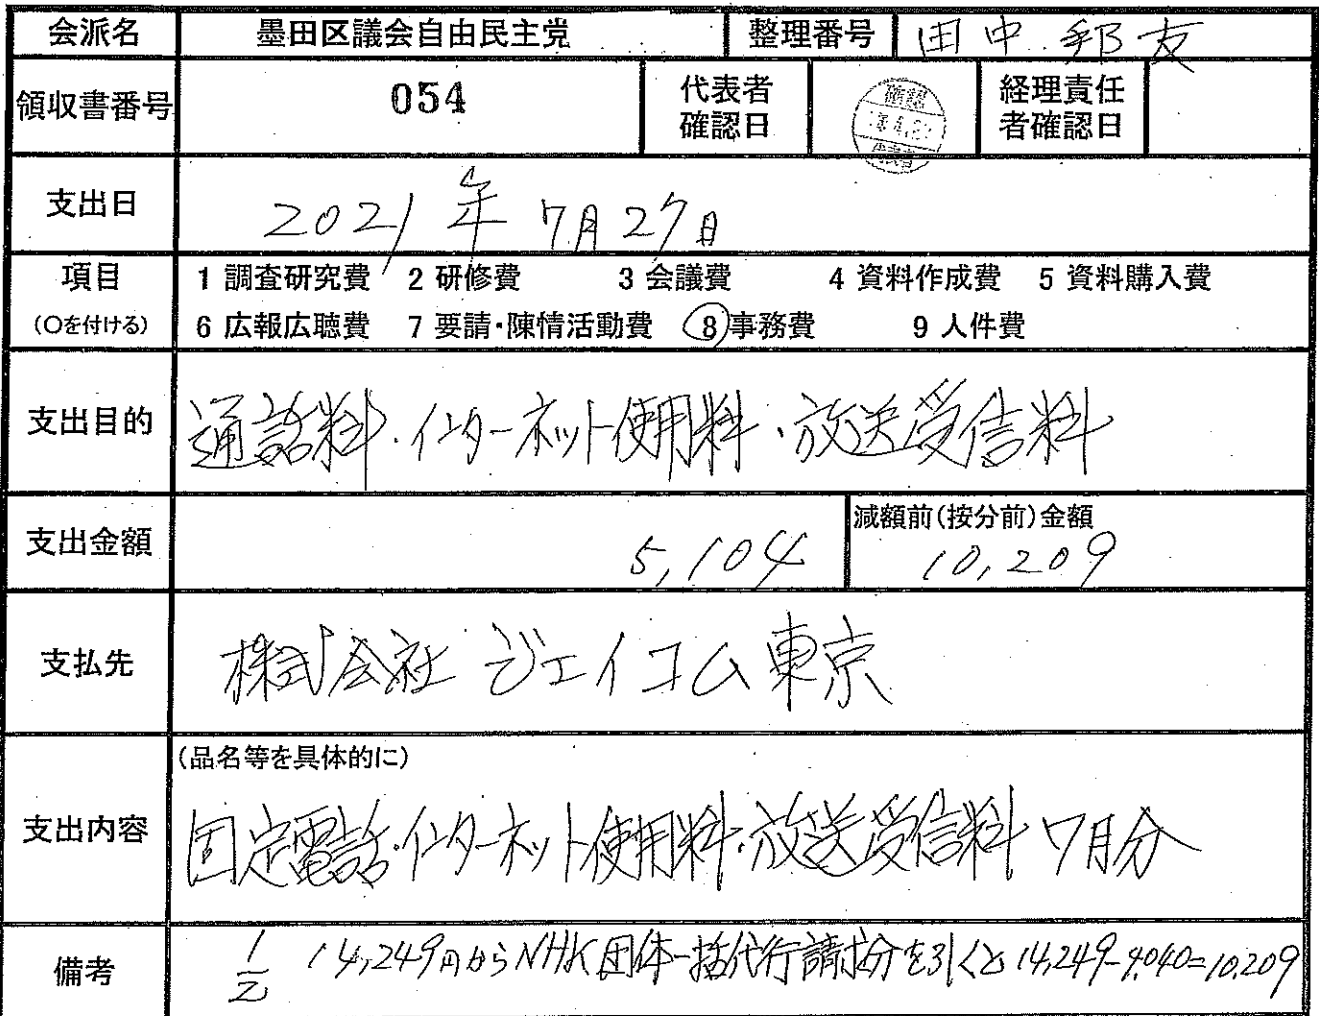 会派名 墨田区議会自由民主党 整理番号 田中邦友
領収書番号 054 代表者確認日 確認 経理責任者確認日
支出日 2021年7月27日
項目 1 調査研究費 2 研修費 3 会議費 4 資料作成費 5 資料購入費
(○を付ける) 6 広報広聴費 7 要請・陳情活動費 8 事務費 9 人件費
支出目的 通話料・インターネット使用料・放送受信料
支出金額 5,104 減額前(按分前)金額 10,209
支払先 株式会社 ジェイコム東京
(品名等を具体的に)
支出内容 固定電話・インターネット使用料・放送受信料 7月分
備考 1/2 14,249円からNHK団体一括代行請求分を引くと 14,249-4,040=10,209